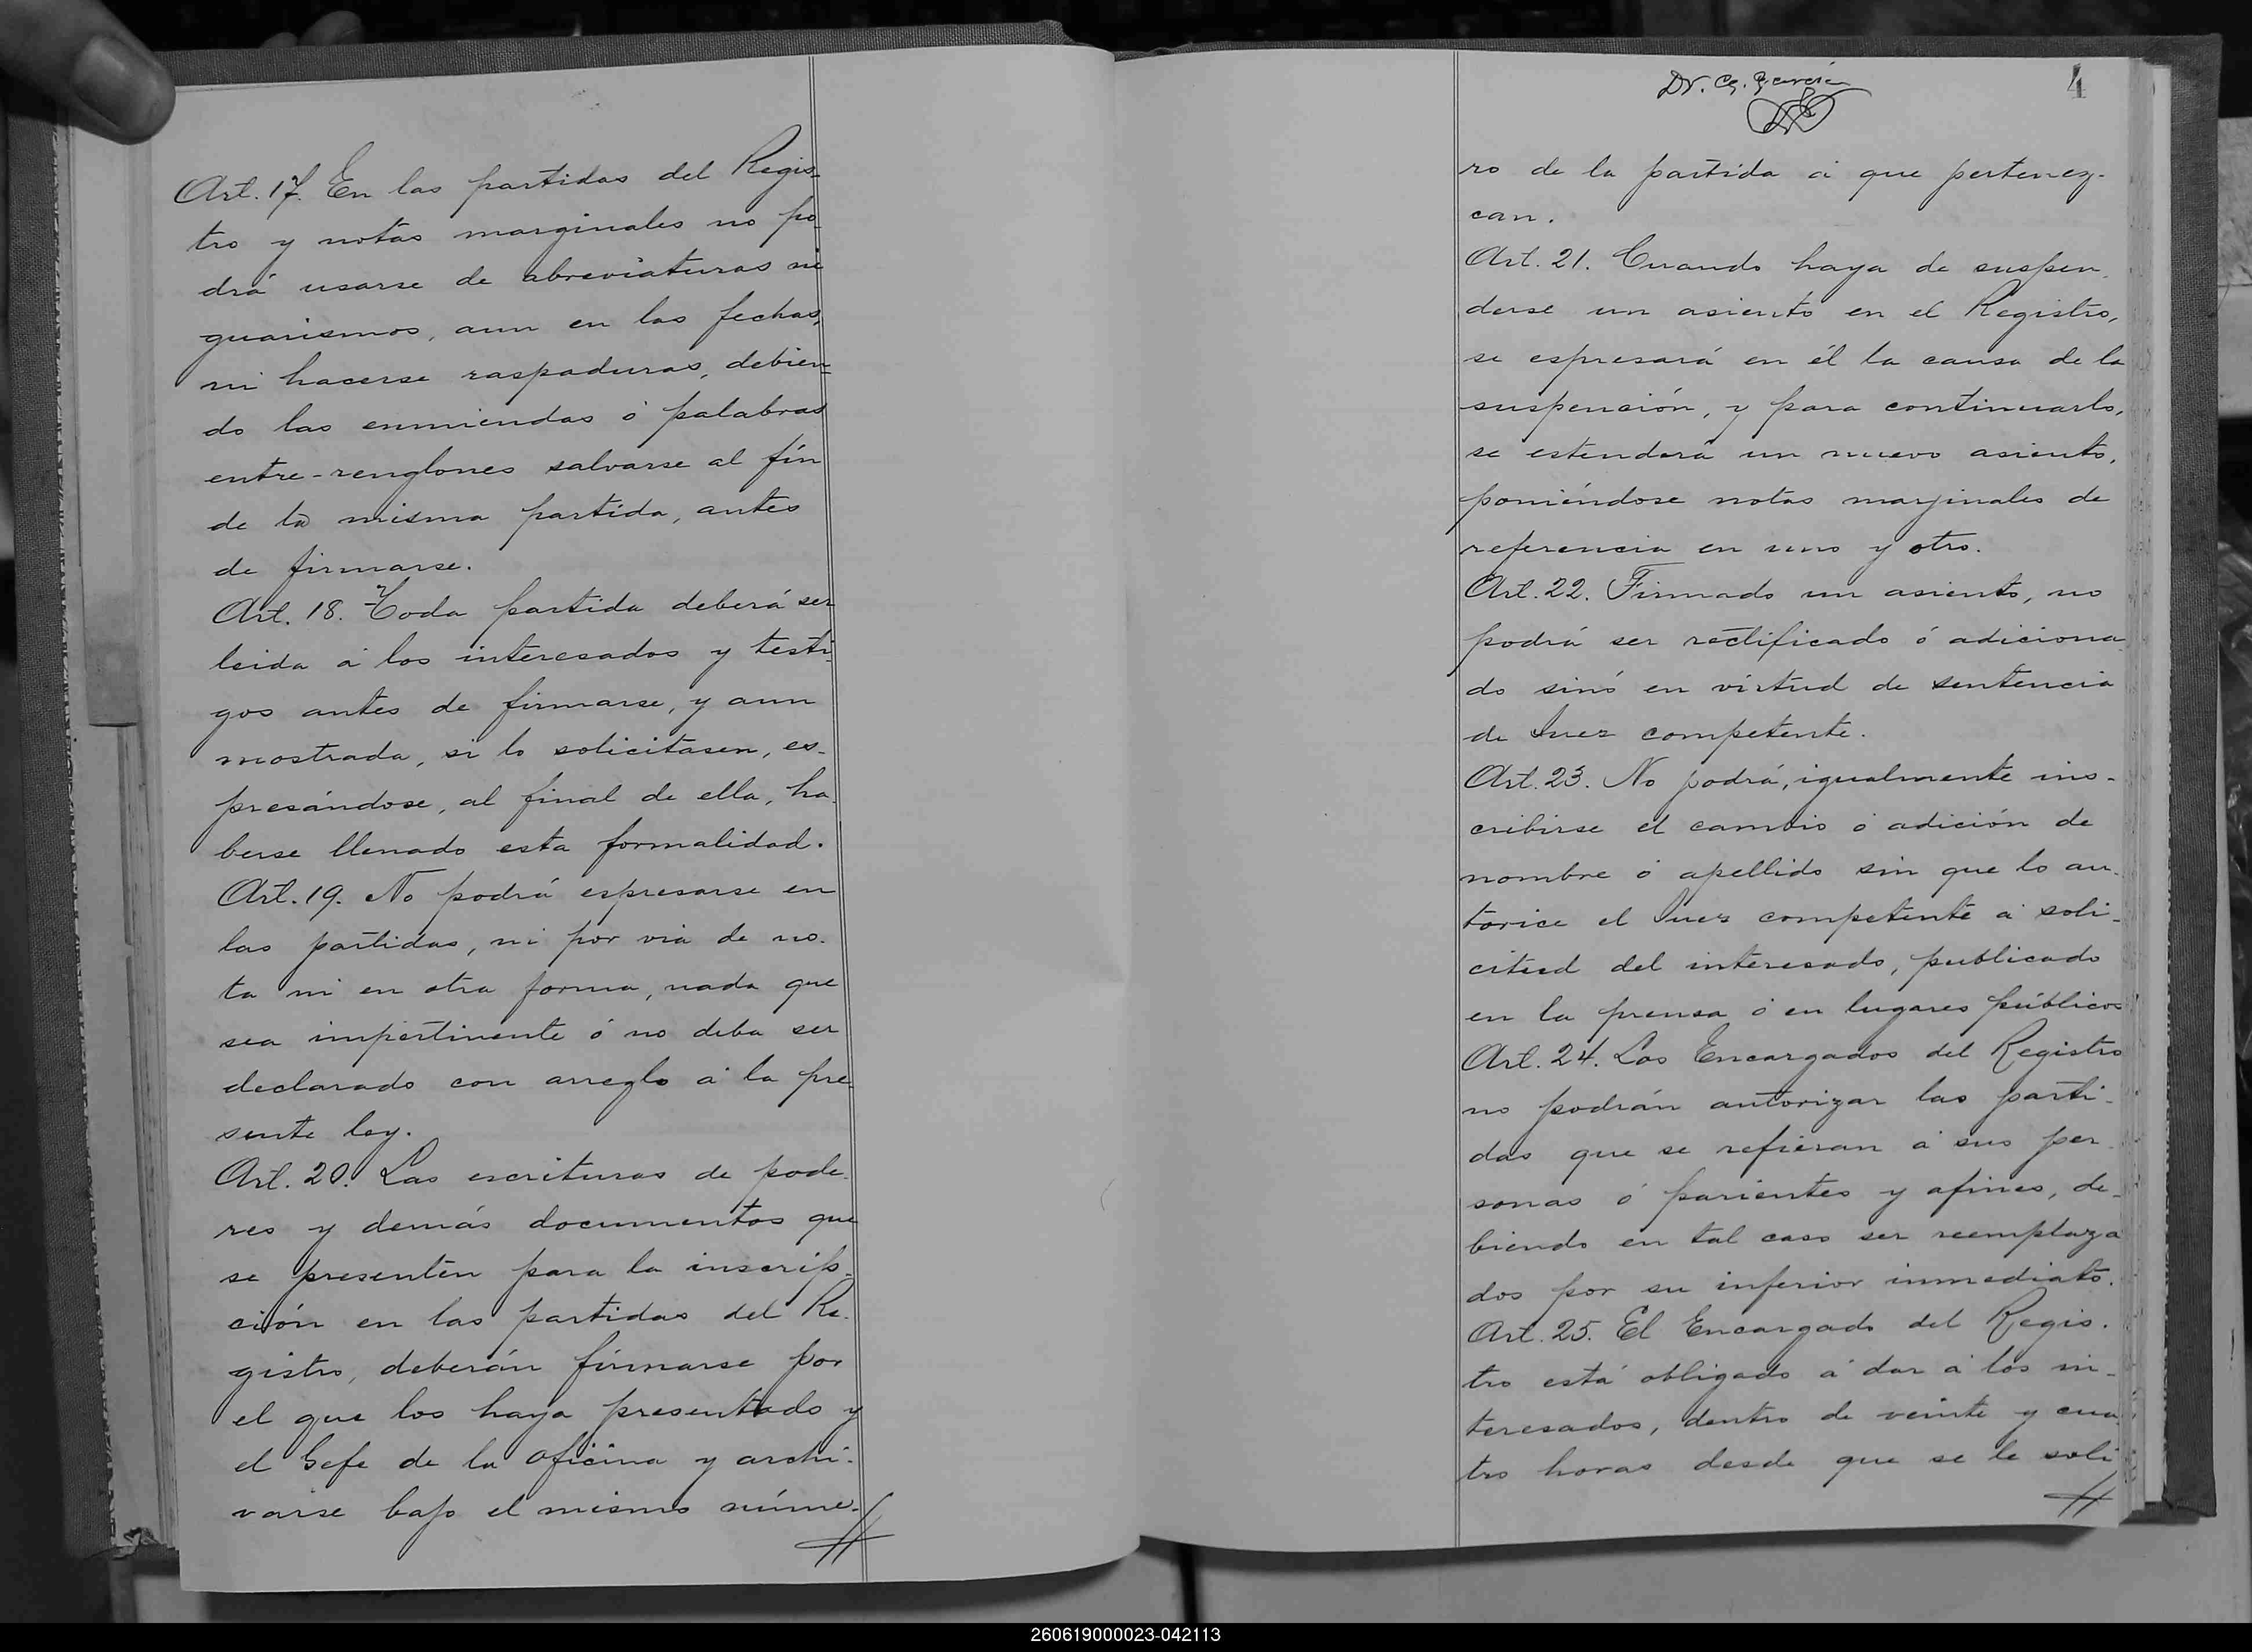 Art. 17. En las partidas del Regis-
tro y notas marginales no po-
drá usarse de abreviaturas ni
guarismos, aun en las fechas,
ni hacerse raspaduras, debien-
do las enmiendas ó palabras
entre-renglones salvarse al fin
de la misma partida, antes
de firmarse.
Art. 18. Toda partida deberá ser
leida á los interesados y testi-
gos antes de firmarse, y aun
mostrada, si lo solicitasen, es-
presándose, al final de ella, ha-
berse llenado esta formalidad.
Art. 19. No podrá espresarse en
las partidas, ni por via de no-
ta ni en otra forma, nada que
sea impertinente ó no deba ser
declarado con arreglo á la pre-
sente ley.
Art. 20. Las escrituras de pode-
res y demás documentos que
se presenten para la inscrip-
ción en las partidas del Re-
gistro, deberán firmarse por
el que los haya presentado y
el Gefe de la oficina y archi-
varse bajo el mismo núme-
Dr. G. García
4
ro de la partida á que pertenez-
can.
Art. 21. Cuando haya de suspen-
derse un asiento en el Registro,
se espresará en él la causa de la
suspención, y para continuarlo,
se estenderá un nuevo asiento,
poniéndose notas marjinales de
referencia en uno y otro.
Art. 22. Firmado un asiento, no
podrá ser rectificado ó adiciona-
do sinó en virtud de sentencia
de Juez competente.
Art. 23. No podrá, igualmente ins-
cribirse el cambio ó adición de
nombre ó apellido sin que lo au-
torice el Juez competente á soli-
citud del interesado, publicado
en la prensa ó en lugares públicos
Art. 24. Los Encargados del Registro
no podrán autorizar las parti-
das que se refieran á sus per-
sonas ó parientes y afines, de-
biendo en tal caso ser reemplaza
dos por su inferior inmediato.
Art. 25. El Encargado del Regis-
tro está obligado á dar á los in-
teresados, dentro de veinte y cua-
tro horas desde que se le soli
260619000023-042113